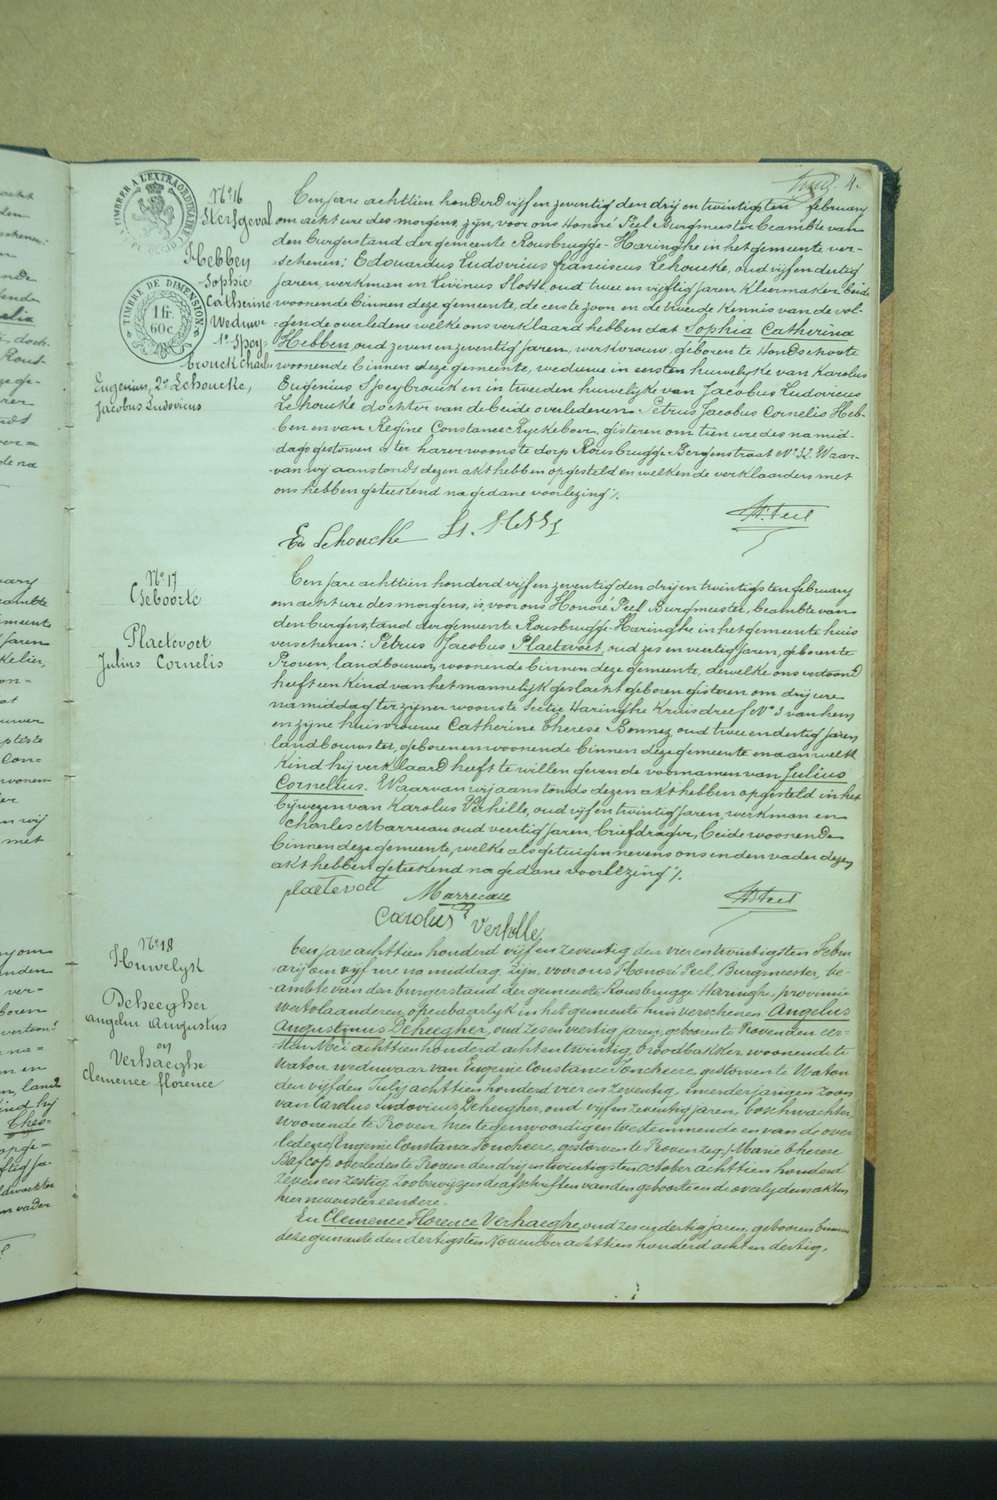 4.
TIMBRE A L'EXTRAORDINAIRE
TIMBRE DE DIMENSION
1 fr.
60c
N° 16
Sterfgeval
Hebben
Sophie
Catherine
Weduwe
1° Spey-
brouck Charl.
Eugenius, 2° Lehoucke,
Jacobus Ludovicus
Ten jare achttien honderd vijf en zeventig den drij en twintigsten february
om acht ure des morgens, zijn, voor ons Honoré Peel Burgmeester beambte van
den burgerstand der gemeente Rousbrugge-Haringhe in het gemeente ver-
schenen: Edouardus Ludovicus franciscus Lehoucke, oud vijf en dertig
jaren, werkman en Livinus oud twee en vijftig jaren, Kleermaker beide
woonende binnen deze gemeente, de eerste zoon en de tweede kennis van de vol-
gende overledene welke ons verklaard hebben dat Sophia Catherina
Hebben, oud zeven en zeventig jaren, werkvrouw, geboren te Hondschoote
woonende binnen deze gemeente, weduwe in eersten huwelyke van Karolus
Eugenius Speybrouck en in tweeden huwelyke van Jacobus Ludovicus
Lehoucke dochter van de beide overledenen Petrus Jacobus Cornelis Heb-
ben en van Regine Constance Ryckeboer, gisteren om tien ure des namid-
dags gestorven is ter harer woonste dorp Rousbrugge Bergenstraat N° 32. Waar-
van wy aanstonds dezen akt hebben opgesteld en welken de verklaarders met
ons hebben geteekend na gedane voorlezing ./.
Ed Lehoucke
H. Peel
N° 17
Geboorte
Plaetevoet
Julius Cornelis
Ten jare achttien honderd vijf en zeventig den drij en twintigsten february
om acht ure des morgens, is, voor ons Honoré Peel Burgmeester, beambte van
den burgerstand der gemeente Rousbrugge-Haringhe in het gemeente huis
verschenen: Petrus Jacobus Plaetevoet, oud zes en veertig jaren, geboren te
Proven, landbouwer, woonende binnen deze gemeente, dewelke ons vertoond
heeft een kind van het mannelyk geslacht geboren gisteren om drij ure
namiddag ter zijner woonste Sectie Haringhe Kruisdreef N° 3 van hem
en zijne huisvrouwe Catherine Therese Bonnez oud twee en dertig jaren
landbouwster, geboren en woonende binnen deze gemeente en aan welk
kind hij verklaard heeft te willen geven de voornamen van Julius
Cornelius. Waarvan wij aanstonds dezen akt hebben opgesteld in het
bijwezen van Karolus Verhille, oud vijf en twintig jaren, werkman en
Charles Marreau oud veertig jaren, briefdrager, beide woonende
binnen deze gemeente, welke als getuigen nevens ons en den vader dezen
akt hebben geteekend na gedane voorlezing ./.
plaetevoet
Marreau
H. Peel
Carolus Verhille
N° 18
Huwelyk
Deheegher
Angelus Augustus
en
Verhaeghe
Clemence florence
Ten jare achttien honderd vijf en zeventig den vier en twintigsten Febru-
arij om vijf ure na middag, zijn, voor ons Honoré Peel, Burgmeester, be-
ambte van den burgerstand der gemeente Rousbrugge-Haringhe, provincie
Westvlaanderen, openbaarlyk in het gemeente huis verschenen Angelus
Augustinus Deheegher, oud zes en veertig jaren, geboren te Proven den eer-
sten Mei achttien honderd acht en twintig, broodbakker woonende te
Watou, weduwaar van Eugenie Constance Foncheere, gestorven te Watou
den vijfden Julij achttien honderd vier en zeventig, meerderjarigen zoon
van Carolus Ludovicus Deheegher, oud vijf en zeventig jaren, boschwachter
woonende te Proven, hier tegenwoordig en toestemmende en van de over-
Marie Therese
Bafcop, overleden te Proven den drij en twintigsten october achttien honderd
zeven en zestig, zoo bewijzen de afschriften van den geboorte en de overlydensakten
hier nevens
En Clemence Florence Verhaeghe, oud zes en dertig jaren, geboren binnen
deze gemeente den dertigsten November achttien honderd acht en dertig,